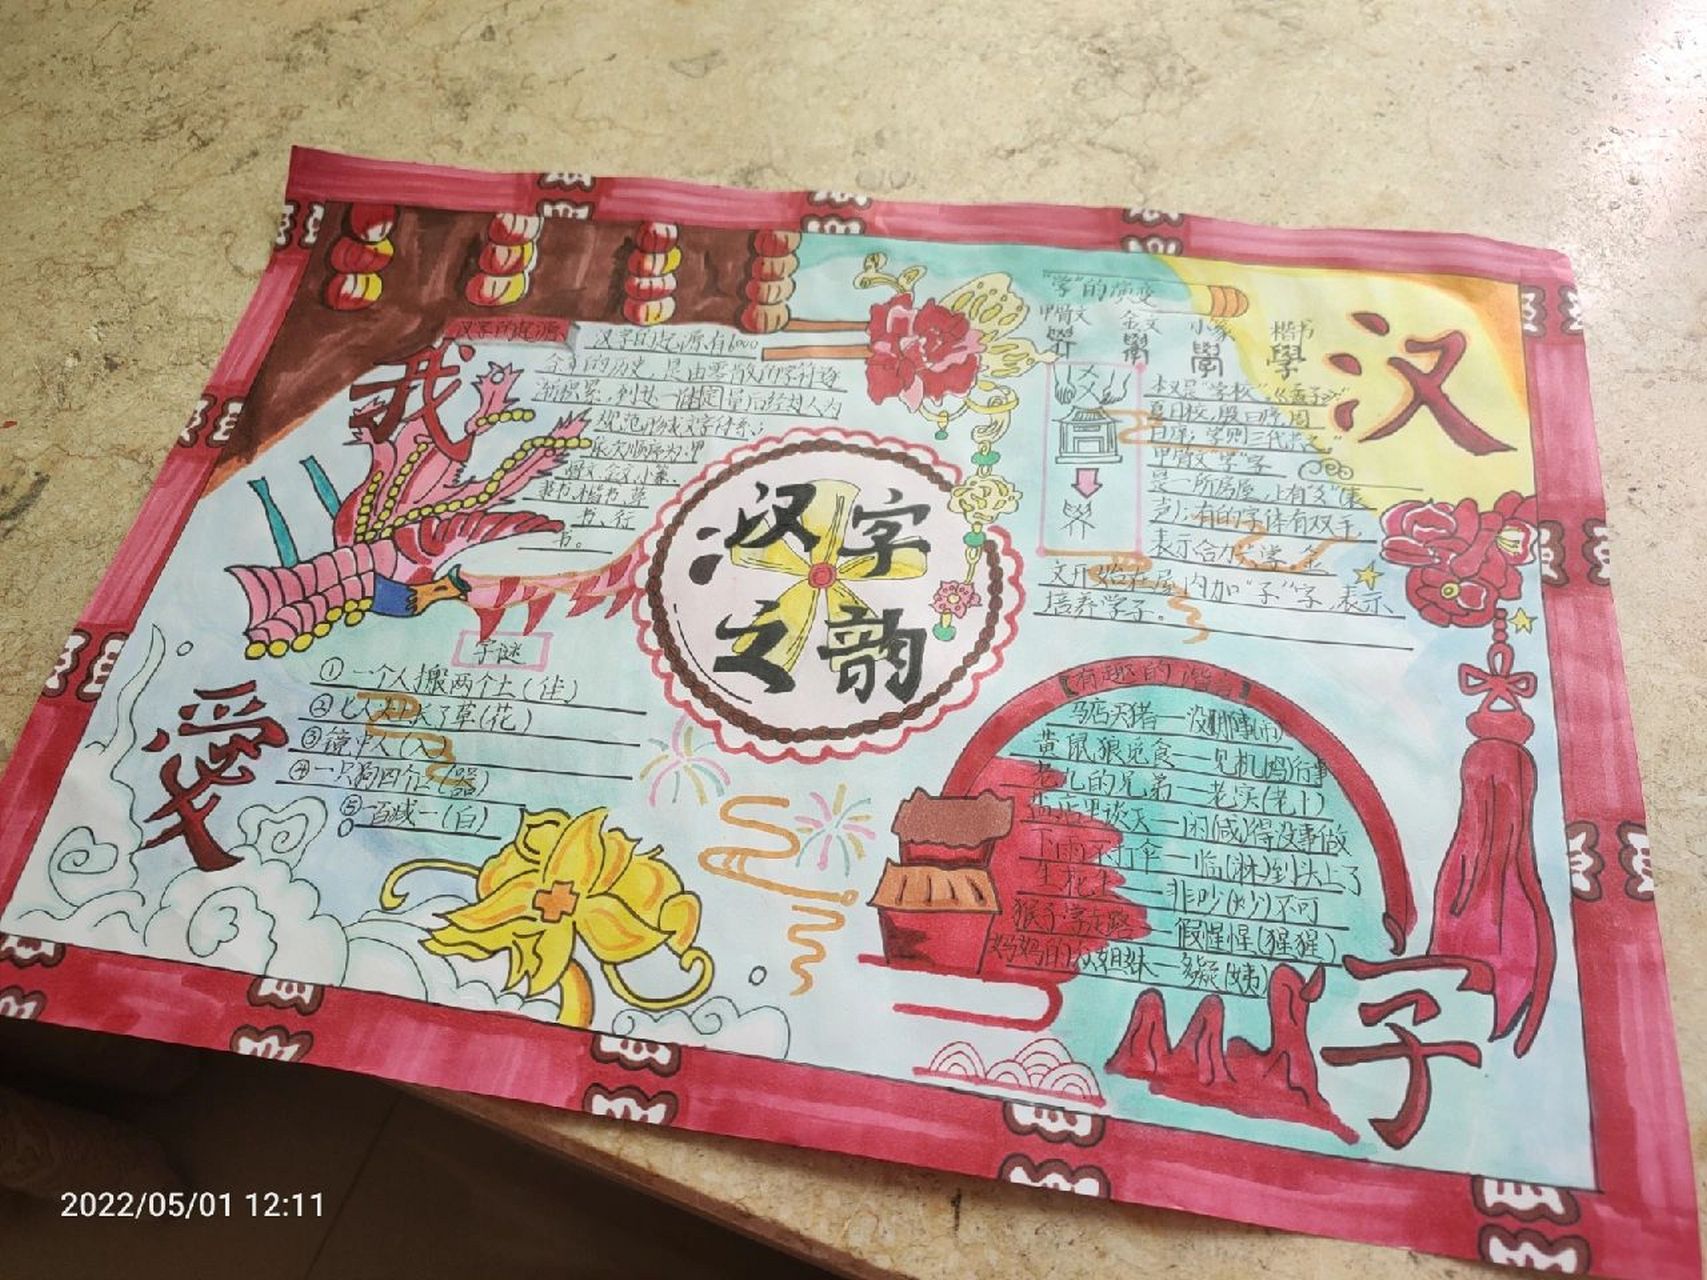 汉字的起源
我
汉字的起源,有6000
余年的历史,是由零散的字符逐
渐积累,到达一定
规范形成文字体系
依次顺序为:甲
骨文、金文、小篆、
隶书、楷书、草
书、行
书。
字谜
①一个人搬两个土(佳)
②七人头上长了草(花)
③镜中人(入)
④一只狗四个口(器)
⑤百减一(白)
愛
汉字
之韵
"学"的演变
甲骨文 金文 小篆 楷书
學
本义是"学校"《孟子》:"
夏曰校,殷曰序,周
曰庠;学则三代共之"
甲骨文"学"字
是一所房屋,上有"爻"(表
有的字体有双手,
表示合力 学,金
文开始在屋内加"子"字,表示
培养学子。
汉
【有趣的谐音】
马店买猪—没那事
黄鼠狼觅食—见机(鸡)行事
老九的兄弟—老实(老十)
盐店里谈天—闲(咸)得没事做
下雨不打伞—临(淋)到头上了
生花生—非吵(炒)不可
猴子学走路—假惺惺(猩猩)
妈妈的 姐妹—多疑(姨)
字
2022/05/01 12:11